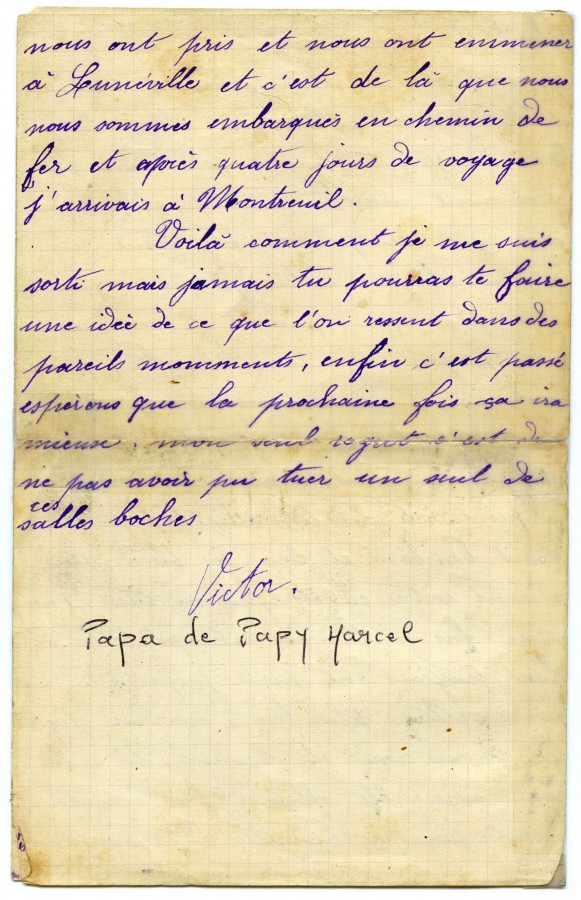 nous ont pris et nous ont emmener
à Lunéville et c'est de là que nous
nous sommes embarqués en chemin de
fer et après quatre jours de voyage
j'arrivais à Montreuil.
Voilà comment je me suis
sorti mais jamais tu pourras te faire
une idée de ce que l'on ressent dans des
pareils momments, enfin c'est passé
espérons que la prochaine fois ça ira
mieux. mon seul regret c'est de
ne pas avoir pu tuer un seul de
ces
salles boches
Victor.
Papa de Papy Marcel